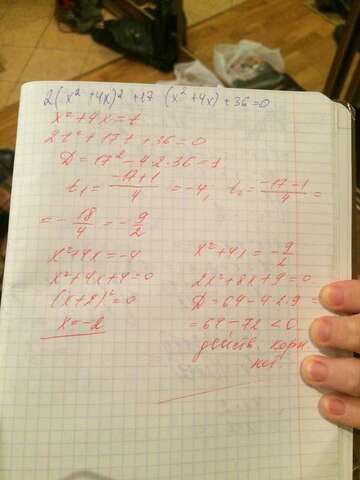 2(x²+4x)² +17 (x²+4x)+36=0
x²+4x=t
2t²+17t+36=0
D=17²-4·2·36=1
t₁=(-17+1)/4=-4, t₂=(-17-1)/4=
=-18/4=-9/2
x²+4x=-4
x²+4x+4=0
(x+2)²=0
x=-2
x²+4x=-9/2
2x²+8x+9=0
D=64-4·2·9=
=64-72<0
действ. корн
нет